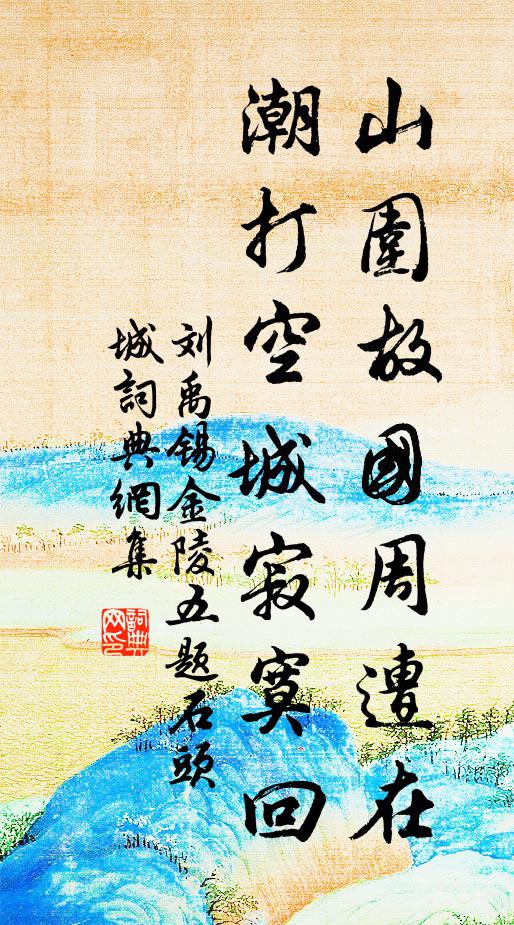 山圍故國周遭在
潮打空城寂寞回
刘禹锡金陵五题石頭
城詞典網集
詞典网印